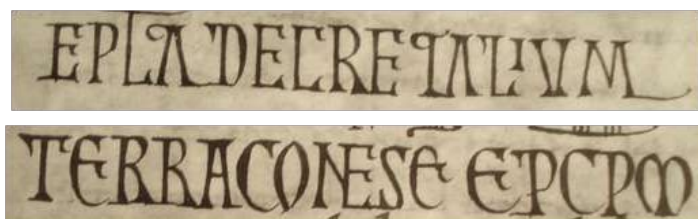 EPLA DECRETALIUM
TERRACONESE EPCPO